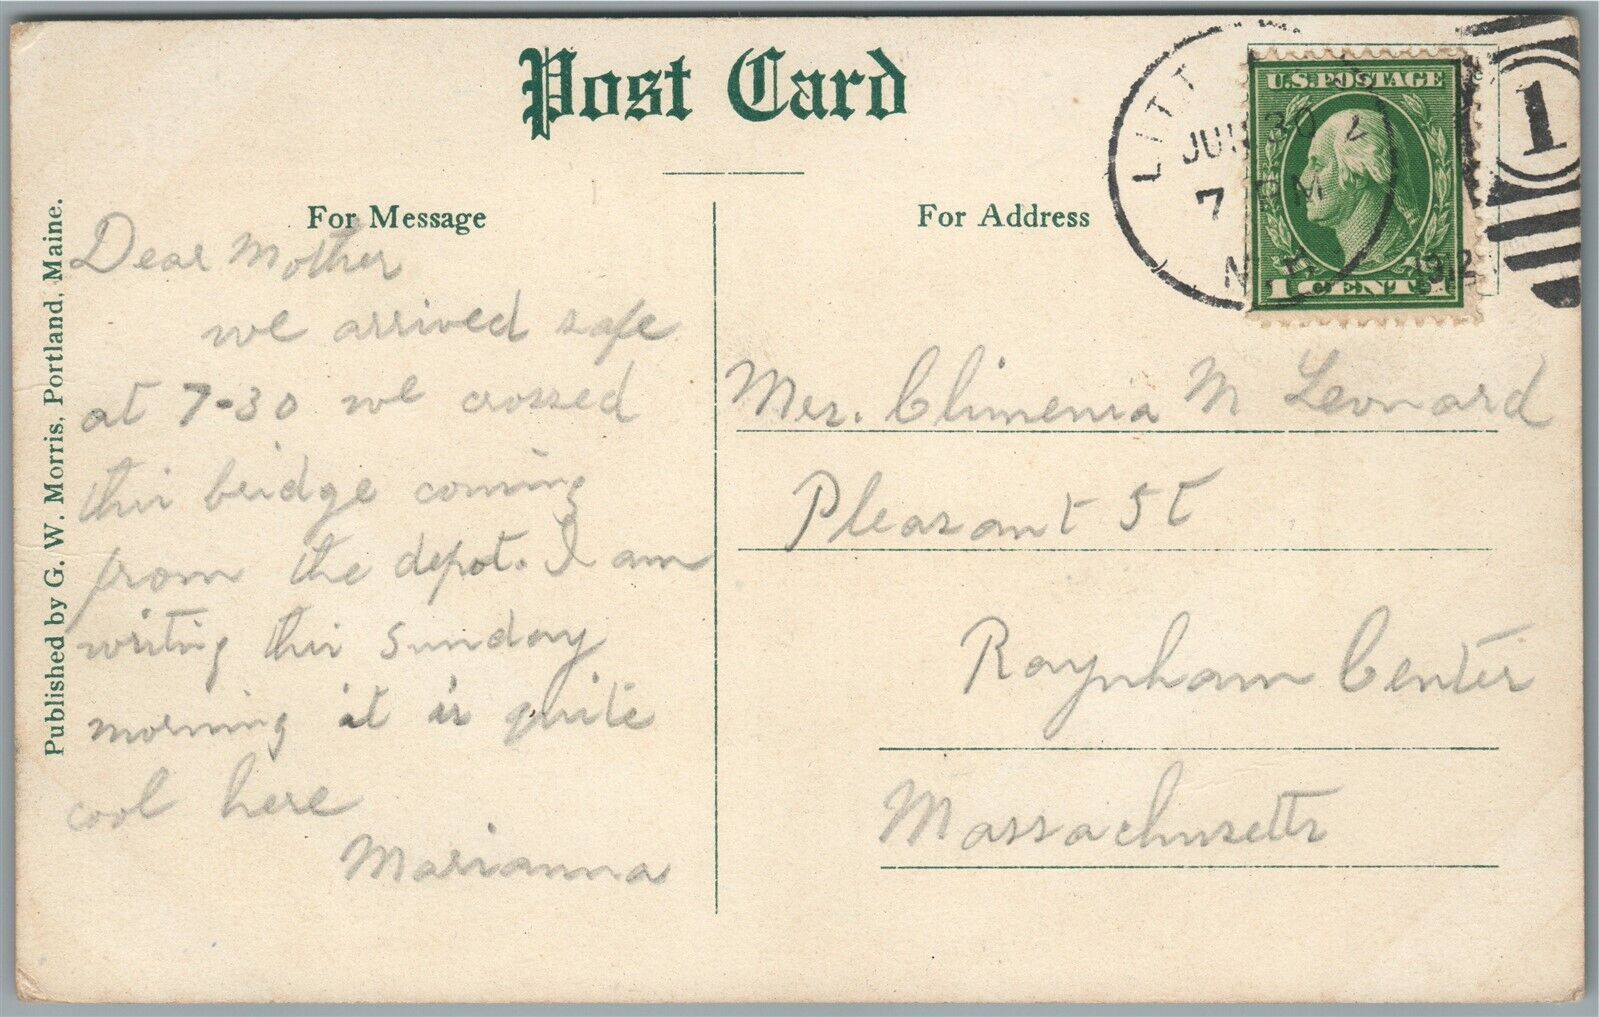 Post Card
For Message
For Address
Published by G. W. Morris, Portland, Maine.
U.S. POSTAGE
1 CENT
JUN 30
7 PM
N H
1912
1
Dear Mother
we arrived safe
at 7-30 we crossed
this bridge coming
from the depot. I am
writing this Sunday
morning it is quite
cool here
Marianna
Mrs. Climenia M Leonard
Pleasant St
Raynham Center
Massachusetts